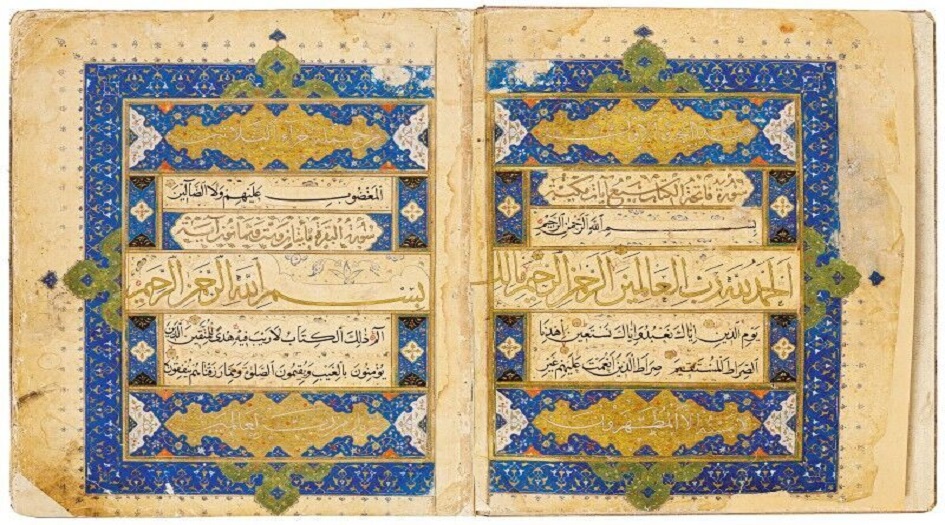 سورة فاتحة الكتاب سبع آيات مكية
بسم الله الرحمن الرحيم
الحمد لله رب العالمين الرحمن الرحيم مالك
يوم الدين اياك نعبد واياك نستعين اهدنا
الصراط المستقيم صراط الذين انعمت عليهم غير
الا المطهرون
المغضوب عليهم ولا الضالين
سورة البقرة مايتان وثمانون آية
بسم الله الرحمن الرحيم
الم ذلك الكتاب لا ريب فيه هدى للمتقين الذين
يؤمنون بالغيب ويقيمون الصلوة ومما رزقناهم ينفقون
رب العالمين